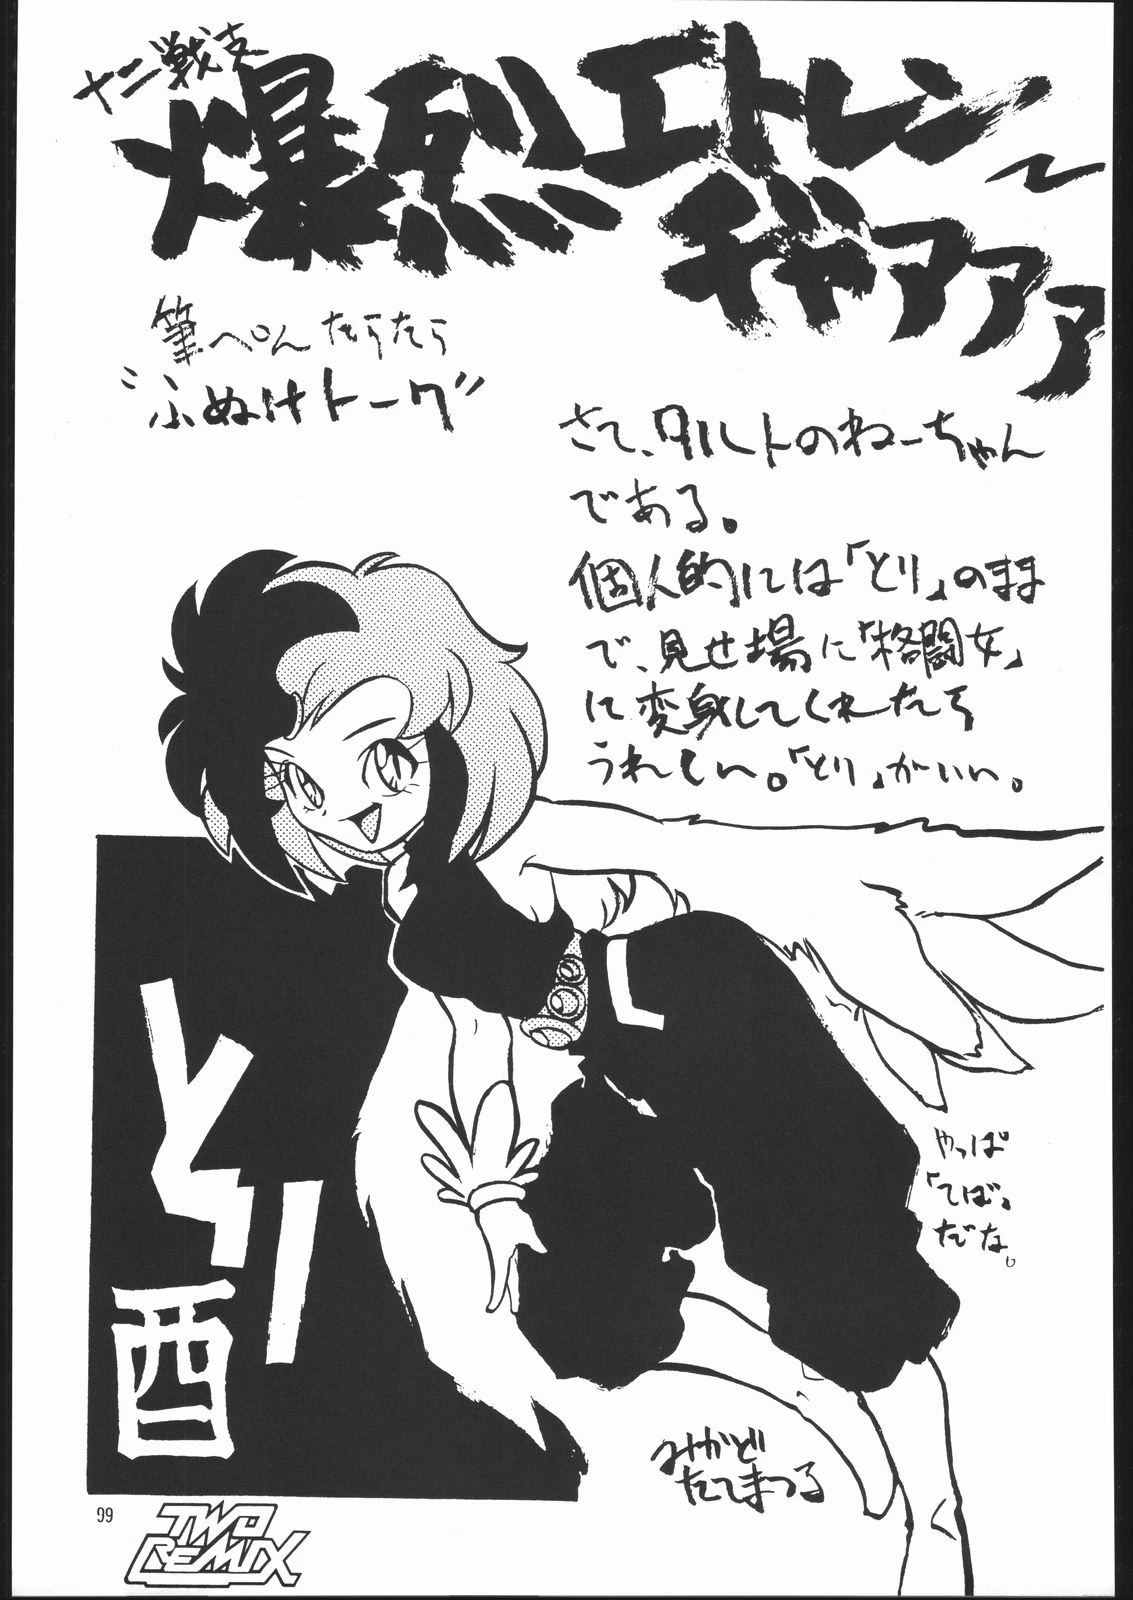 十二戦支
爆烈エトレン〜
ヂャアアァ
筆ぺんたらたら
“ふぬけトーク”
さて、タルトのねーちゃん
である。
個人的には「とり」のまま
で、見せ場に「格闘女」
に変身してくれたら
うれしい。「とり」がいい。
とり
酉
やっぱ
「てば」
だな。
みかど
たてまつる
99
TWO
REMIX